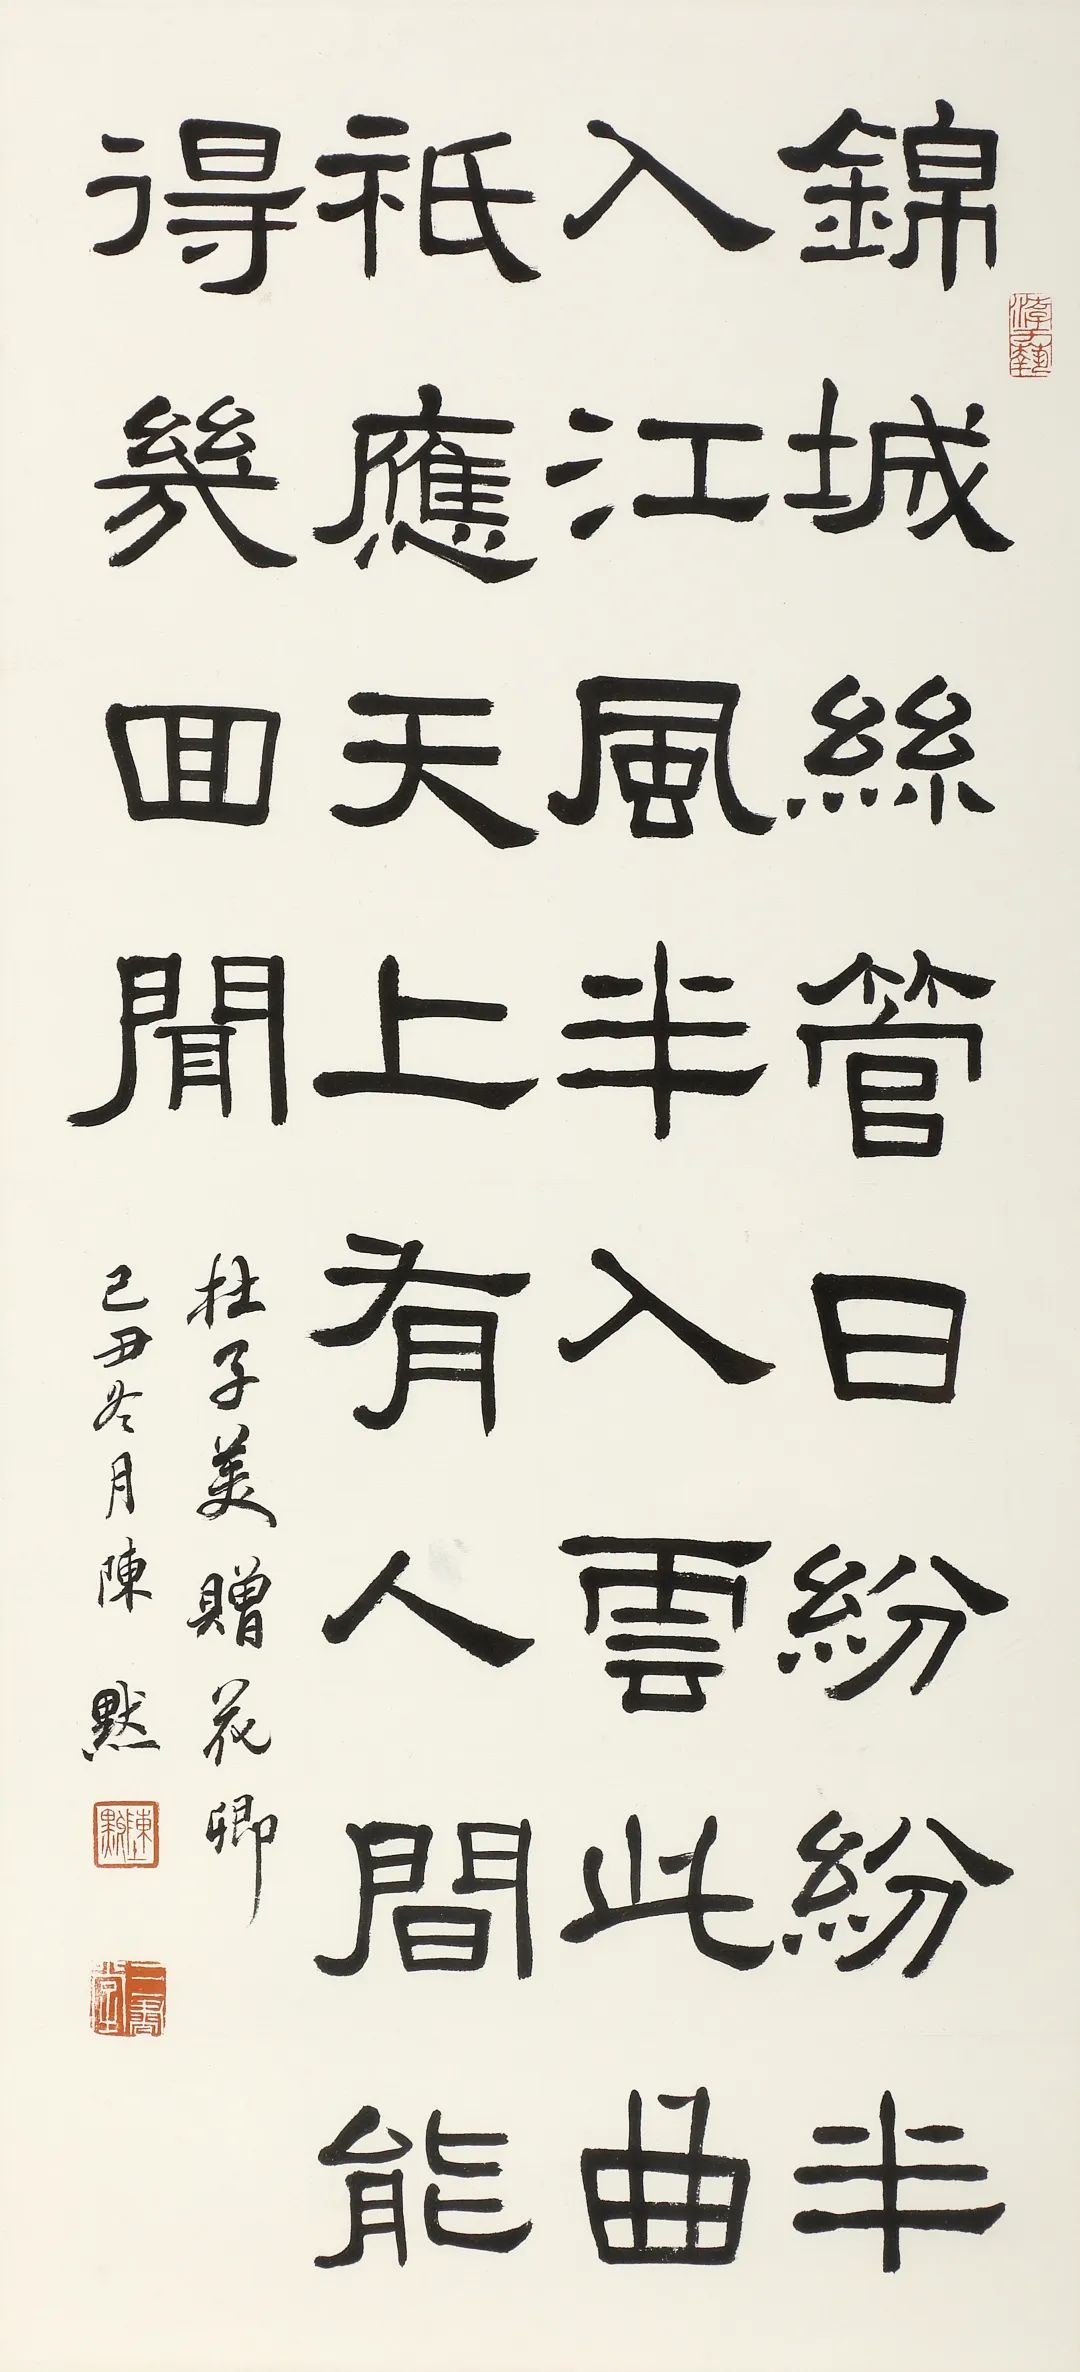 錦城絲管日紛紛半
入江風半入雲此曲
祇應天上有人間能
得幾回聞
杜子美贈花卿
己丑冬月陳默
陳默